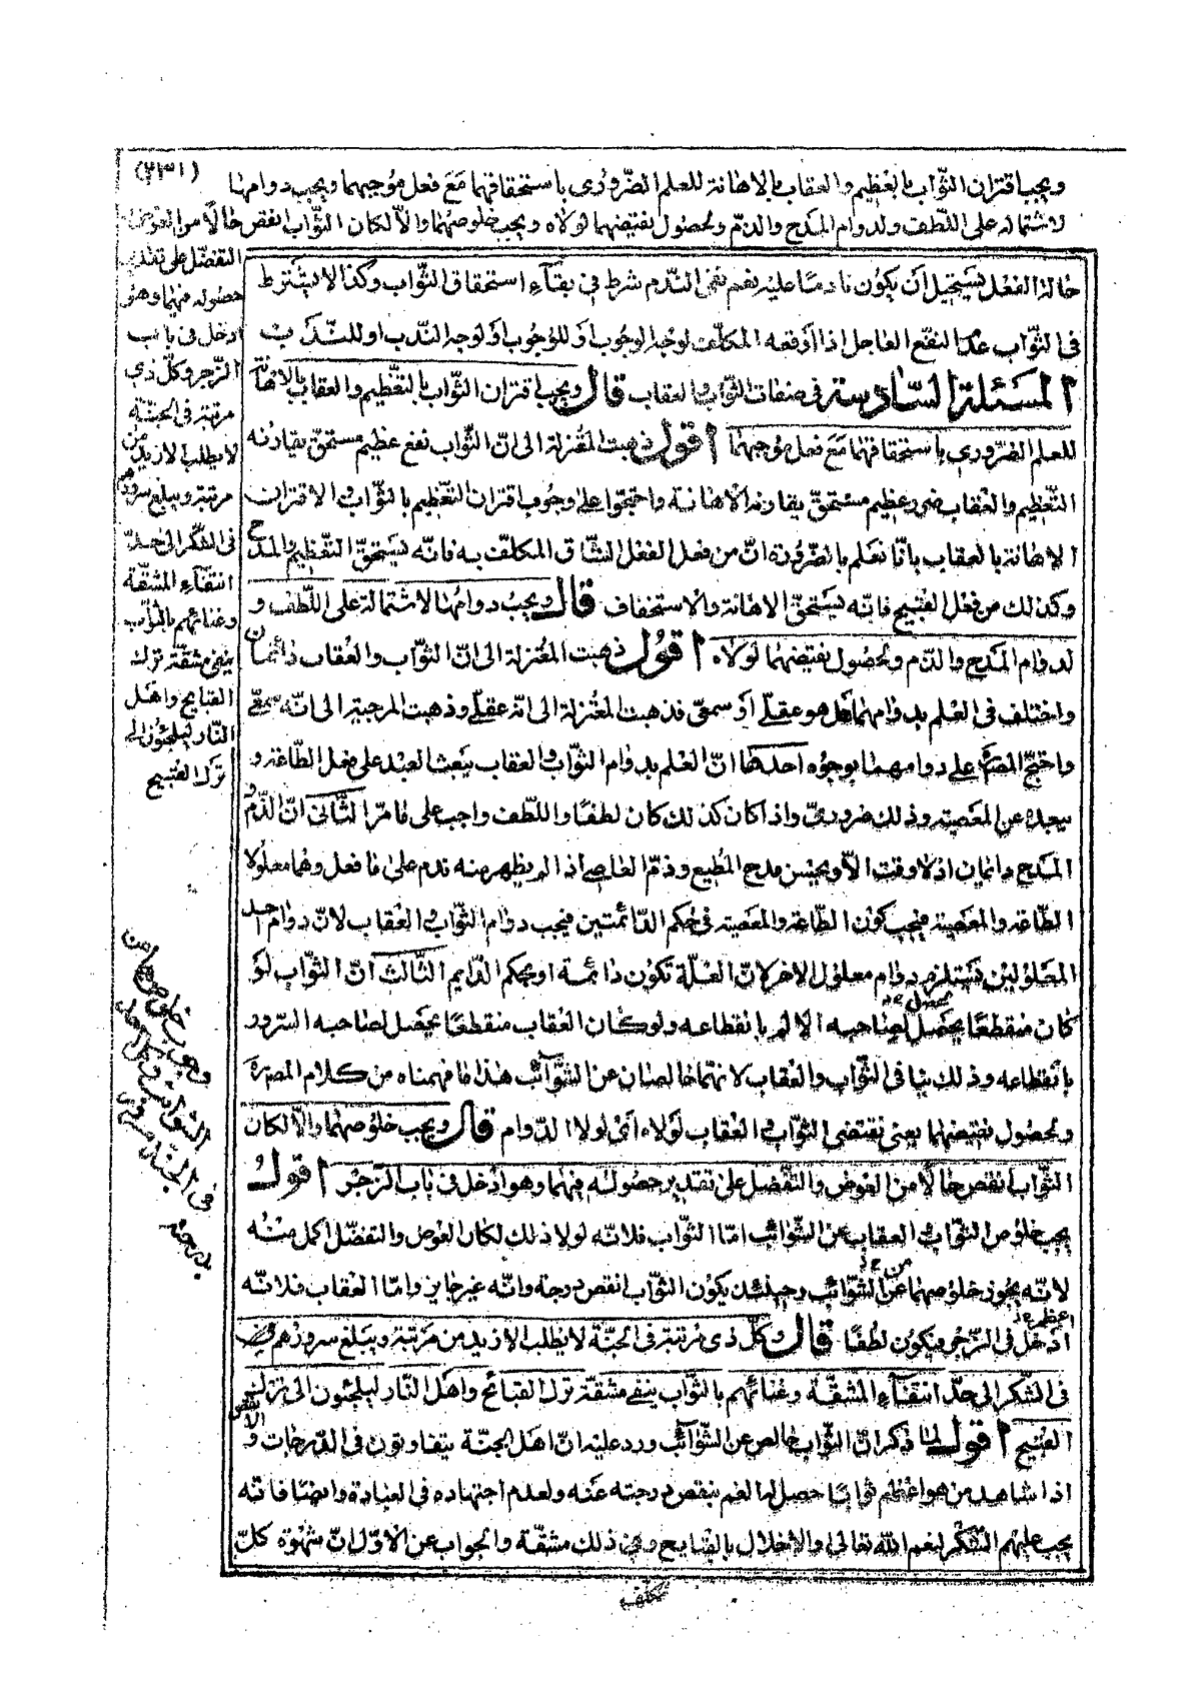 (٢٣١)
ويجب اقتران الثّواب بالتعظيم والعقاب بالاهانة للعلم الضّروري باستحقاقهما مَعَ فعل موجبهما ويجب دوامهما
لاشتماله على اللّطف ولدوام المدح والذمّ ولحصول نقيضهما لولاه ويجب خلوصهما والّا لكان الثّواب انقص حالًا من العوض و
التفضّل على تقدير
حصوله فيهما وهو
ادخل فى باب
الزّجر وكلّ ذي
مرتبة فى الجنّة
لا يطلب الازيد من
مرتبته ويبلغ سرورهم
فى الشّكر الى حدّ
انتفاء المشقّة
وغنائهم بالثّواب
ينفى مشقّة ترك
القبايح واهل
النّار يلجئون الى
ترك القبيح
حالة الفعل يستحيل أن يكون نادمًا عليه نعم نفى النّدم شرط فى بقاء استحقاق الثّواب وكذا لا يشترط
فى الثّواب عدم النفع العاجل اذا اوقعه المكلّف لوجه الوجوب أو للوجوب أو لوجه النّدب او للنّدب
المسئلة السّادسة فى صفات الثّواب والعقاب قال ويجب اقتران الثّواب بالتّعظيم والعقاب بالاهانة
للعلم الضّروري باستحقاقهما مَعَ فعل موجبهما اقول ذهبت المعتزلة الى انّ الثّواب نفع عظيم مستحقّ يقارنه
التّعظيم والعقاب ضرر عظيم مستحقّ يقارنه الاهانة واحتجّوا على وجوب اقتران التّعظيم بالثّواب والاقتران
الاهانة بالعقاب بانّا نعلم بالضّرورة انّ من فعل الفعل الشّاق المكلّف به فانّه يستحقّ التّعظيم والمدح
وكذلك من فعل القبيح فانّه يستحقّ الاهانة والاستخفاف قال ويجب دوامهما لاشتماله على اللّطف و
لدوام المدح والذّم ولحصول نقيضهما لولاه اقول ذهبت المعتزلة الى انّ الثّواب والعقاب دائمان
واختلف فى العلم بدوامهما هل هو عقليّ أو سمعيّ فذهبت المعتزلة الى انّه عقليّ وذهبت المرجئة الى انّه سمعيّ
واحتجّ المصنّف على دوامهما بوجوه احدها انّ العلم بدوام الثّواب والعقاب يبعث العبد على فعل الطّاعة و
يبعده عن المعصية وذلك ضروريّ واذا كان كذلك كان لطفًا واللّطف واجب على ما مرّ الثّانى انّ الذّم و
المدح دائمان اذ لا وقت الّا ويحسن مدح المطيع وذمّ العاصي اذا لم يظهر منه ندم على ما فعل وهما معلولا
الطّاعة والمعصية فيجب كون الطّاعة والمعصية فى حكم الدّائمتين فيجب دوام الثّواب والعقاب لانّ دوام احد
المعلولين يستلزم دوام معلول الآخر لانّ العلّة تكون دائمة او بحكم الدّايم الثّالث انّ الثّواب لو
كان منقطعًا يحصل لصاحبه الالم بانقطاعه ولو كان العقاب منقطعًا يحصل لصاحبه السّرور
بانقطاعه وذلك ينافى الثّواب والعقاب لانّهما خالصان عن الشّوائب هذا ما فهمناه من كلام المصنّف
ولحصول نقيضهما يعنى نقيضى الثّواب والعقاب لولاه أى لولا الدّوام قال ويجب خلوصهما والّا لكان
الثّواب انقص حالًا من العوض والتّفضّل على تقدير حصوله فيهما وهو ادخل فى باب الزّجر اقول
يجب خلوص الثّواب والعقاب عن الشّوائب امّا الثّواب فلانّه لولا ذلك لكان العوض والتفضّل اكمل منه
لانّه يجوز خلوصهما عن الشّوائب وحينئذ يكون الثّواب انقص درجة وانّه غير جايز وامّا العقاب فلانّه
ادخل فى الزّجر فيكون لطفًا قال وكلّ ذى مرتبة فى الجنّة لا يطلب الازيد من مرتبته ويبلغ سرورهم
فى الشّكر الى حدّ انتفاء المشقّة وغنائهم بالثّواب ينفى مشقّة ترك القبائح واهل النّار يلجئون الى ترك
القبيح اقول لمّا ذكر انّ الثّواب خالص عن الشّوائب ورد عليه انّ اهل الجنّة يتفاوتون فى الدّرجات و
اذا شاهد من هو اعظم ثوابًا حصل له الغم بنقص درجته عنه ولعدم اجتهاده فى العبادة وايضًا فانّه
يجب عليهم الشّكر لنعم اللّه تعالى والاخلال بالقبايح وفى ذلك مشقّة والجواب عن الاوّل انّ شهوة كلّ
مكلّف